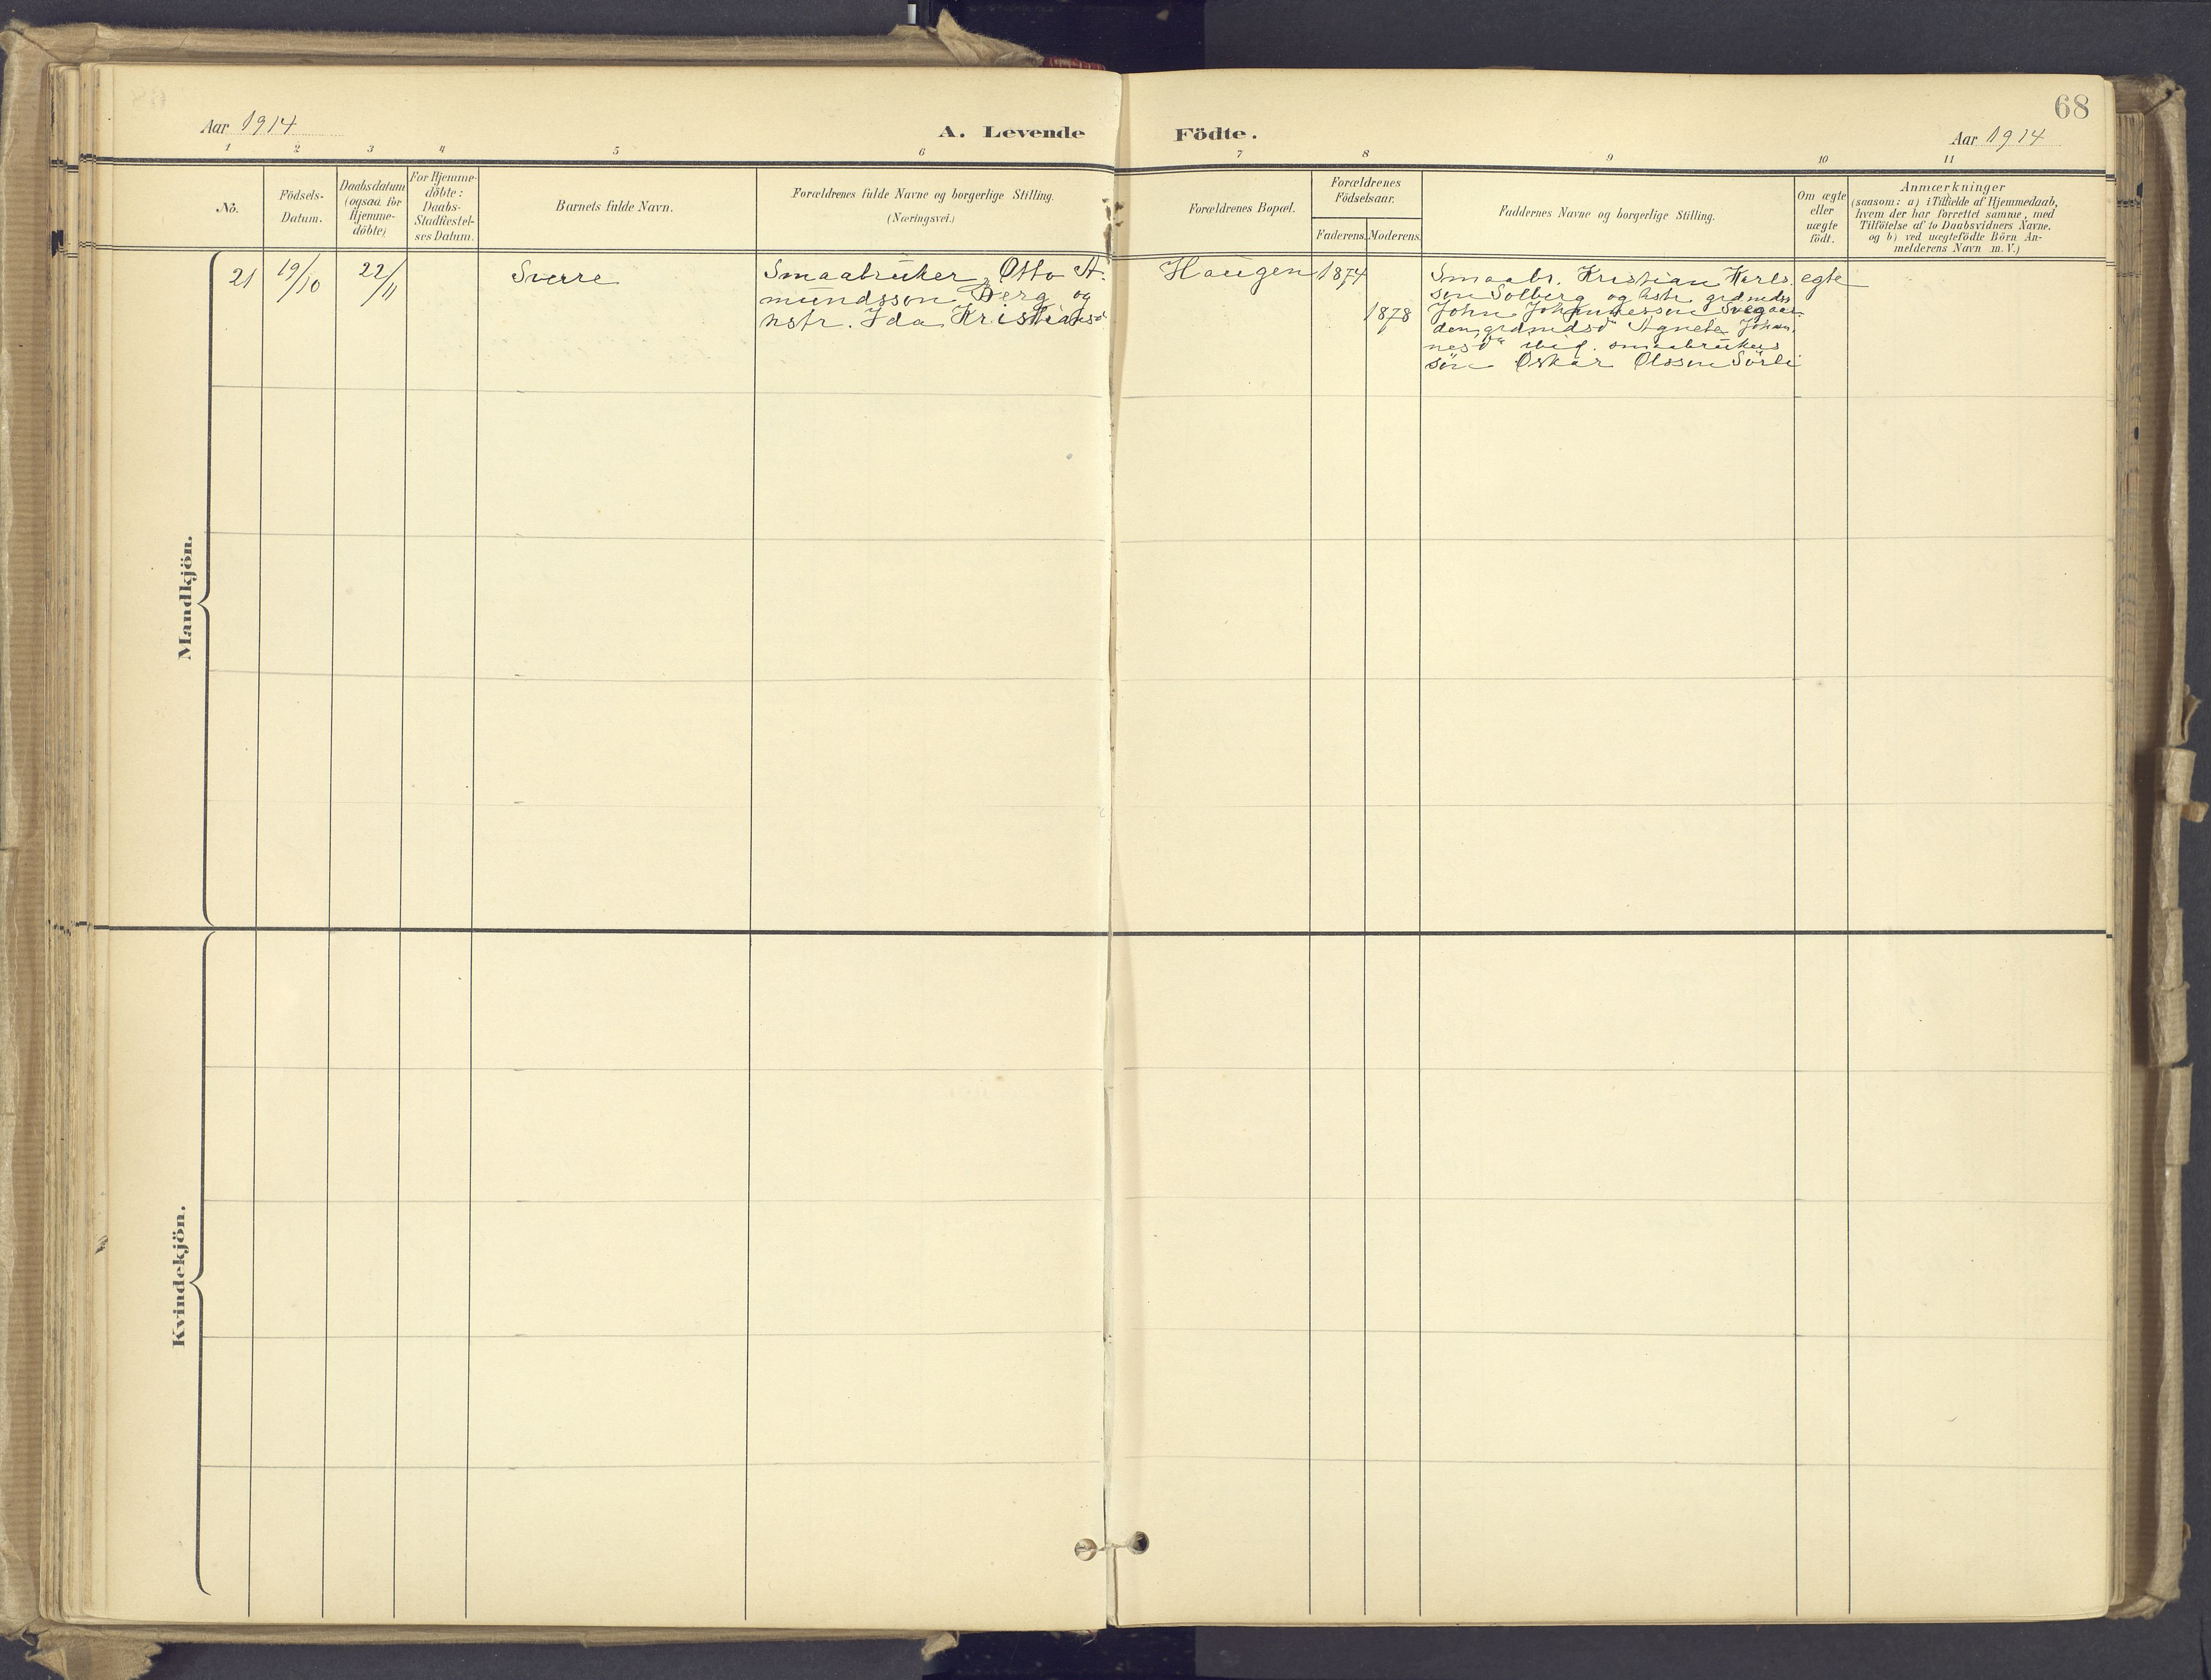 68
Aar 1914
A. Levende Födte.
Aar 1914
1 2 3 4 5 6 7 8 9 10 11
No.
Födsels-
Datum.
Daabsdatum
(ogsaa for
Hjemme-
döbte)
For Hjemme-
döbte:
Daabs-
Stadfæstel-
ses Datum.
Barnets fulde Navn.
Forældrenes fulde Navne og borgerlige Stilling.
(Næringsvei.)
Forældrenes Bopæl.
Forældrenes
Födselsaar.
Faderens. Moderens.
Faddernes Navne og borgerlige Stilling.
Om ægte
eller
uægte
födt.
Anmærkninger
(saasom: a) i Tilfælde af Hjemmedaab,
hvem der har forrettet samme, med
Tilföielse af to Daabsvidners Navne.
og b) ved uægtefödte Börn An-
melderens Navn m. V.)
Mandkjön.
21
19/10
22/11
Sverre
Smaabruker Otto A-
mundsson Berg og
hstr. Ida Kristiansd
Haugen
1874
1878
Smaabr. Kristian Karls
søn Solberg og hstr. grdmdss
John Johannessen
den, grdmdsd Agnete Johan
nesd ibid. smaabrukers
søn Oskar Olsson Sörli
egte
Kvindekjön.